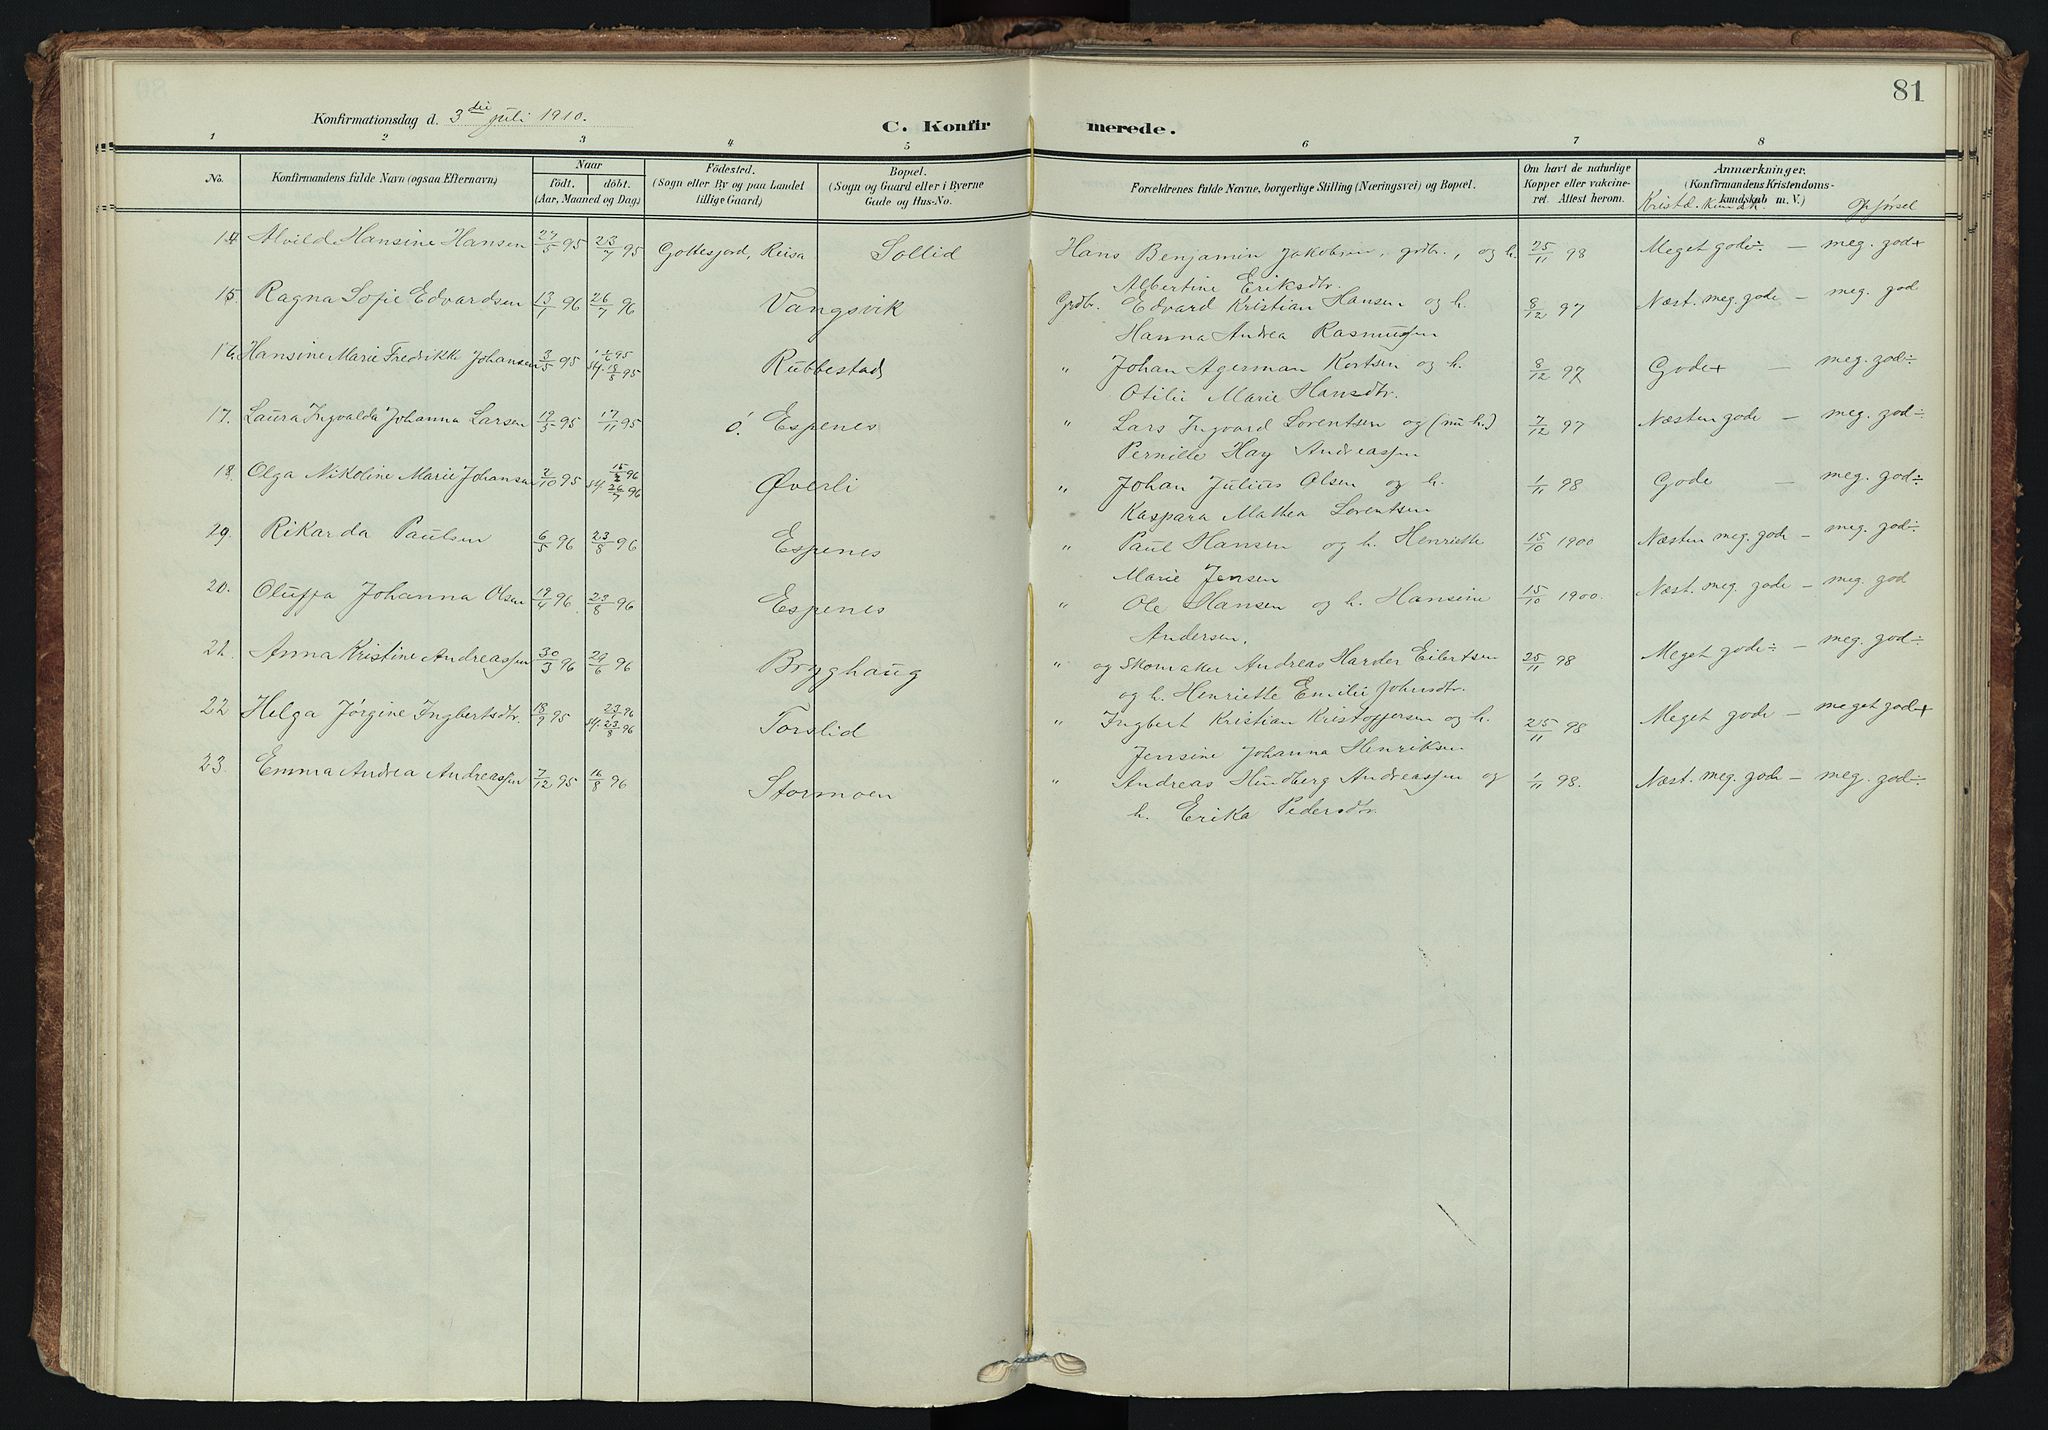 81
Konfirmationsdag d. 3die juli 1910.
C. Konfirmerede.
1 2 3 4 5 6 7 8
No. Konfirmandens fulde Navn (ogsaa Efternavn). Naar födt. döbt. (Aar, Maaned og Dag.) Födested. (Sogn eller By og paa Landet tillige Gaard) Bopæl. (Sogn og Gaard eller i Byerne Gade og Hus-No. Forældrenes fulde Navne, borgerlige Stilling (Næringsvei) og Bopæl. Om havt de naturlige Kopper eller vakcineret. Attest herom. Anmærkninger. (Konfirmandens Kristendomskundskab m. V.)
Kristd. kundsk. Opførsel
14 Alvild Hansine Hansen 27/5 95 23/7 95 Gottesjord, Reisa Sollid Hans Benjamin Jakobsen, grdbr., og h. 25/11 98 Meget gode÷ — meg. god+
Albertine Eriksdtr.
15. Ragna Sofie Edvardsen 13/1 96 26/7 96 Vangsvik Grdbr. Edvard Kristian Hansen og h. 8/12 97 Næst. meg. gode — meg. god
Hanna Andrea Rasmussen
16. Hansine Marie Fredrikke Johansen 3/5 95 1/6 95 Rubbestad " Johan Agerman Kortsen og h. 8/12 97 Gode+ — meg. god÷
st. 18/8 95
Otilie Marie Hansdtr.
17. Laura Ingvalda Johanna Larsen 19/5 95 17/11 95 Espenes " Lars Ingvard Lorentsen og (nu h.) 7/12 97 Næsten gode — meg. god÷
Pernille Hay Andreassen
18. Olga Nikoline Marie Johansen 2/10 95 15/2 96 Øverli " Johan Julius Olsen og h. 1/11 98 Gode — meg. god÷
st. 26/7 96
Kaspara Mathea Lorentsen
29. Rikarda Paulsen 6/5 96 23/8 96 Espenes " Paul Hansen og h. Henriette 15/10 1900 Næsten meg. gode — meg. god÷
Marie Jensen
20. Oluffa Johanna Olsen 19/4 96. 23/8 96 Espenes " Ole Hansen og h. Hansine 15/10 1900. Næst. meg. gode — meg. god
Andersen.
21. Anna Kristine Andreassen 30/3 96 29/6 96 Brygghaug " og Skomaker Andreas Harder Eilertsen 25/11 98 Meget gode÷ — meg. god÷
og h. Henriette Emilie Johnsdtr.
22 Helga Jørgine Ingbertsdtr. 18/9 95 Torslid " Ingbert Kristian Kristoffersen og h. 25/11 98 Meget gode — meget god+
st. 23/8 96
Jensine Johanna Henriksen
23. Emma Andrea Andreassen 7/12 95 16/8 96 Stormoen " Andreas Hundberg Andreassen og 1/11 98. Næst. meg. gode — meg. god÷
h. Erika Pedersdtr.